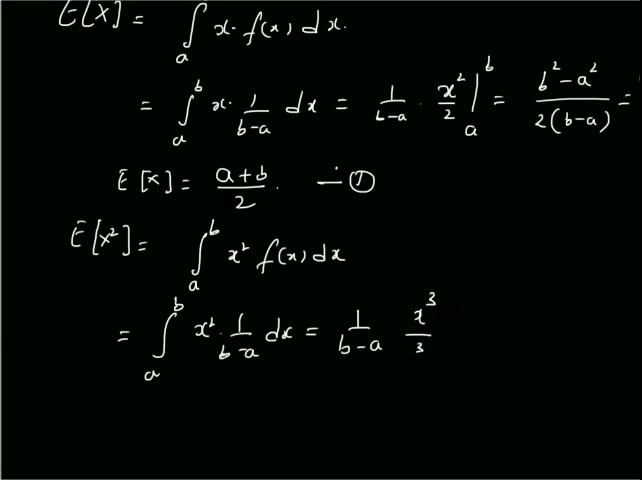 E[X] = ∫ₐ x· f(x) dx.
= ∫ₐᵇ x· 1/(b-a) dx = 1/(b-a) · x²/2 |ₐᵇ = (b²-a²)/(2(b-a)) =
E[X] = (a+b)/2. — ①
E[X²] = ∫ₐᵇ x² f(x) dx
= ∫ₐᵇ x² · 1/(b-a) dx = 1/(b-a) x³/3